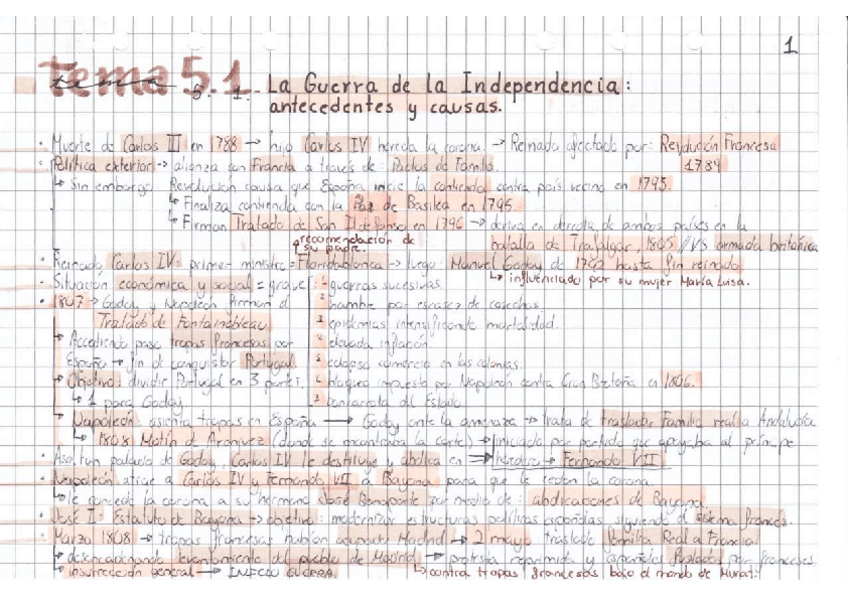 1
Tema 5.1. La Guerra de la Independencia:
antecedentes y causas.
· Muerte de Carlos III en 1788 → hijo Carlos IV hereda la corona. → Reinado afectado por: Revolución Francesa
1789
· Política exterior → alianza con Francia a través de: Pactos de Familia.
↳ Sin embargo Revolución causa que España inicie la contienda contra país vecino en 1793.
↳ Finaliza contienda con la Paz de Basilea en 1795.
↳ Firman Tratado de San Ildefonso en 1796 → deriva en derrota de ambos países en la
batalla de Trafalgar, 1805 // VS armada británica
recomendación de
su padre.
· Reinado Carlos IV: primer ministro = Floridablanca → luego: Manuel Godoy de 1792 hasta fin reinado
↳ influenciado por su mujer María Luisa.
· Situación económica y social = grave: 1 guerras sucesivas.
· 1807 → Godoy y Napoleón firman el 2 hambre por escasez de cosechas.
Tratado de Fontainebleau 3 epidemias intensificando mortalidad.
↳ Accediendo paso tropas francesas por 4 elevada inflación.
España → fin de conquistar Portugal. 5 colapso comercio en las colonias.
↳ Objetivo: dividir Portugal en 3 partes. 6 bloqueo impuesto por Napoleón contra Gran Bretaña en 1806.
↳ 1 para Godoy 7 bancarrota del Estado
↳ Napoleón: asienta tropas en España → Godoy ante la amenaza → trata de trasladar Familia real a Andalucía
↳ 1808 Motín de Aranjuez (donde se encontraba la corte) → iniciado por partido que apoyaba al príncipe
· Asaltan palacio de Godoy, Carlos IV le destituye y abdica en ⇒ heredero → Fernando VII
· Napoleón atrae a Carlos IV y Fernando VII a Bayona para que le cedan la corona.
↳ le concede la corona a su hermano José Bonaparte por medio de: abdicaciones de Bayona.
· José I: Estatuto de Bayona → objetivo: modernizar estructuras políticas españolas siguiendo el sistema francés.
· Marzo 1808 → tropas francesas habían ocupado Madrid → 2 mayo traslado Familia Real a Francia
↳ desencadenando levantamiento del pueblo de Madrid → protesta reprimida y españoles fusilados por franceses.
↳ insurrección general → GUERRA. ↳ contra tropas francesas bajo el mando de Murat.